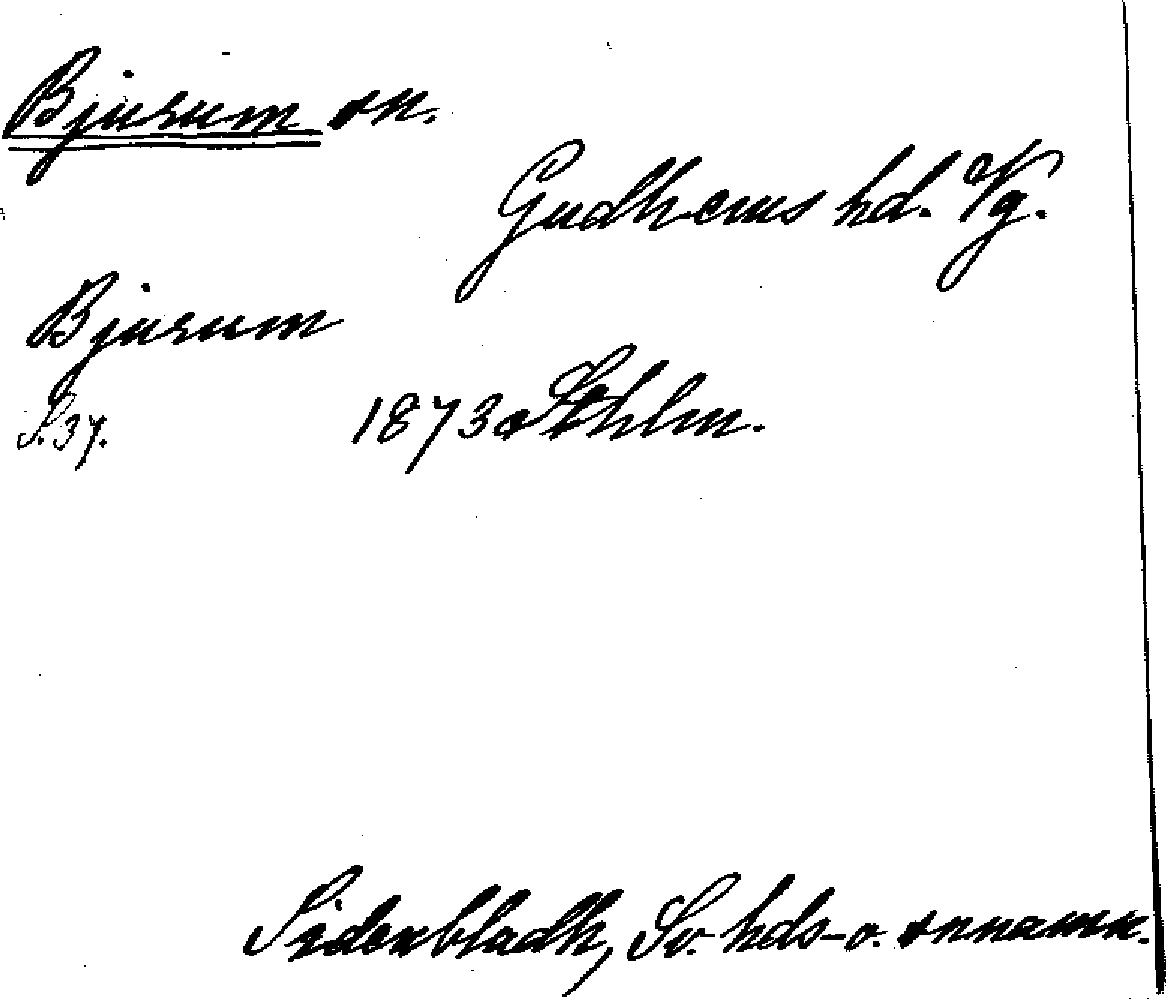 Bjurum sn.
Gudhems hd. Vg.
Bjurum
S. 37. 1873 Sthlm.
Sidenbladh, Sv. hds- o. snnamn.